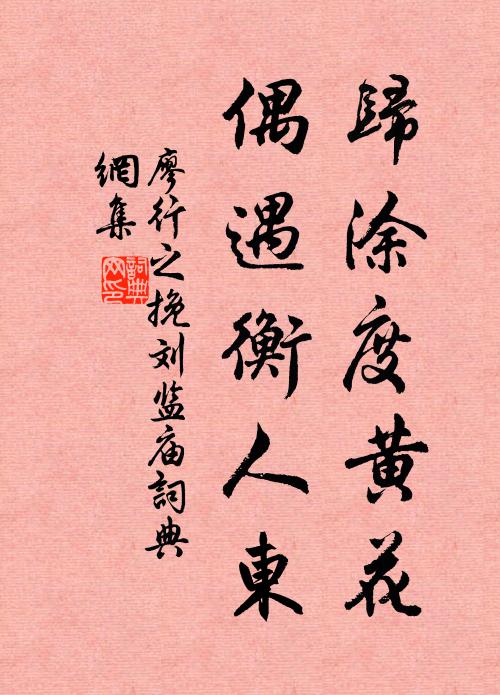 歸涂度黄花
偶遇衡人東
廖行之挽刘监庙詞典
網集
詞典
网印